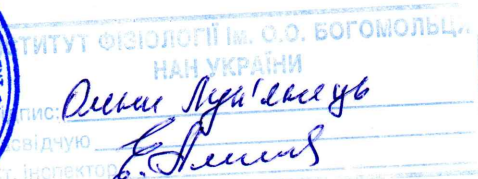 ТИТУТ ФІЗІОЛОГІЇ ІМ. О.О. БОГОМОЛЬЦ
НАН УКРАЇНИ
пис: Олени Лук'янець
свідчую
ст. інспектор